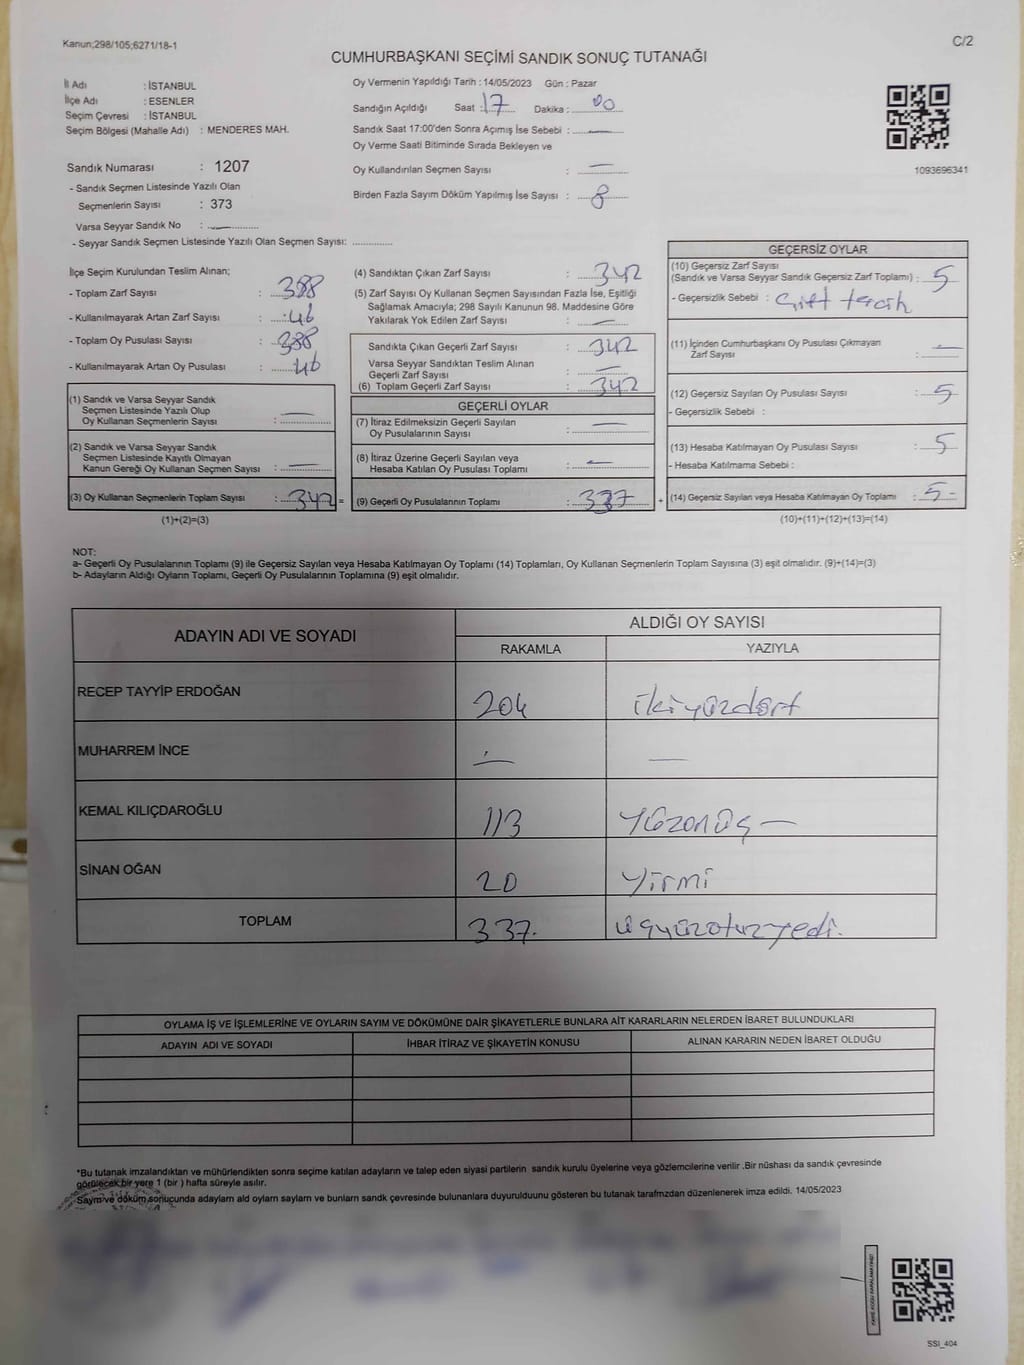 Kanun;298/105;6271/18-1
C/2
CUMHURBAŞKANI SEÇİMİ SANDIK SONUÇ TUTANAĞI
İl Adı : İSTANBUL
İlçe Adı : ESENLER
Seçim Çevresi : İSTANBUL
Seçim Bölgesi (Mahalle Adı) : MENDERES MAH.
Sandık Numarası : 1207
- Sandık Seçmen Listesinde Yazılı Olan
Seçmenlerin Sayısı : 373
Varsa Seyyar Sandık No : —
- Seyyar Sandık Seçmen Listesinde Yazılı Olan Seçmen Sayısı: ..............
Oy Vermenin Yapıldığı Tarih : 14/05/2023 Gün : Pazar
Sandığın Açıldığı Saat : 17 Dakika : 00
Sandık Saat 17:00'den Sonra Açımış İse Sebebi : —
Oy Verme Saati Bitiminde Sırada Bekleyen ve
Oy Kullandırılan Seçmen Sayısı : —
Birden Fazla Sayım Döküm Yapılmış İse Sayısı : 8
1093696341
İlçe Seçim Kurulundan Teslim Alınan;
- Toplam Zarf Sayısı : 388
- Kullanılmayarak Artan Zarf Sayısı : 46
- Toplam Oy Pusulası Sayısı : 388
- Kullanılmayarak Artan Oy Pusulası : 46
(1) Sandık ve Varsa Seyyar Sandık
Seçmen Listesinde Yazılı Olup
Oy Kullanan Seçmenlerin Sayısı : —
(2) Sandık ve Varsa Seyyar Sandık
Seçmen Listesinde Kayıtlı Olmayan
Kanun Gereği Oy Kullanan Seçmen Sayısı : —
(3) Oy Kullanan Seçmenlerin Toplam Sayısı : 342 =
(1)+(2)=(3)
(4) Sandıktan Çıkan Zarf Sayısı : 342
(5) Zarf Sayısı Oy Kullanan Seçmen Sayısından Fazla İse, Eşitliği
Sağlamak Amacıyla; 298 Sayılı Kanunun 98. Maddesine Göre
Yakılarak Yok Edilen Zarf Sayısı : —
Sandıkta Çıkan Geçerli Zarf Sayısı : 342
Varsa Seyyar Sandıktan Teslim Alınan
Geçerli Zarf Sayısı : —
(6) Toplam Geçerli Zarf Sayısı : 342
GEÇERLİ OYLAR
(7) İtiraz Edilmeksizin Geçerli Sayılan
Oy Pusulalarının Sayısı : —
(8) İtiraz Üzerine Geçerli Sayılan veya
Hesaba Katılan Oy Pusulası Toplamı : —
(9) Geçerli Oy Pusulalarının Toplamı : 337 +
GEÇERSİZ OYLAR
(10) Geçersiz Zarf Sayısı
(Sandık ve Varsa Seyyar Sandık Geçersiz Zarf Toplamı) : 5
- Geçersizlik Sebebi : Çift tercih
(11) İçinden Cumhurbaşkanı Oy Pusulası Çıkmayan
Zarf Sayısı : —
(12) Geçersiz Sayılan Oy Pusulası Sayısı : 5
- Geçersizlik Sebebi :
(13) Hesaba Katılmayan Oy Pusulası Sayısı : 5
- Hesaba Katılmama Sebebi :
(14) Geçersiz Sayılan veya Hesaba Katılmayan Oy Toplamı : 5-
(10)+(11)+(12)+(13)=(14)
NOT:
a- Geçerli Oy Pusulalarının Toplamı (9) ile Geçersiz Sayılan veya Hesaba Katılmayan Oy Toplamı (14) Toplamları, Oy Kullanan Seçmenlerin Toplam Sayısına (3) eşit olmalıdır. (9)+(14)=(3)
b- Adayların Aldığı Oyların Toplamı, Geçerli Oy Pusulalarının Toplamına (9) eşit olmalıdır.
ADAYIN ADI VE SOYADI
ALDIĞI OY SAYISI
RAKAMLA YAZIYLA
RECEP TAYYİP ERDOĞAN 204 ikiyüzdört
MUHARREM İNCE — —
KEMAL KILIÇDAROĞLU 113 Yüzonüç —
SİNAN OĞAN 20 Yirmi
TOPLAM 337. üçyüzotuzyedi.
OYLAMA İŞ VE İŞLEMLERİNE VE OYLARIN SAYIM VE DÖKÜMÜNE DAİR ŞİKAYETLERLE BUNLARA AİT KARARLARIN NELERDEN İBARET BULUNDUKLARI
ADAYIN ADI VE SOYADI İHBAR İTİRAZ VE ŞİKAYETİN KONUSU ALINAN KARARIN NEDEN İBARET OLDUĞU
*Bu tutanak imzalandıktan ve mühürlendikten sonra seçime katılan adayların ve talep eden siyasi partilerin sandık kurulu üyelerine veya gözlemcilerine verilir .Bir nüshası da sandık çevresinde
görülecek bir yere 1 (bir ) hafta süreyle asılır.
Sayım ve döküm sonucunda adayların ald oyların sayların ve bunların sandk çevresinde bulunanlara duyurulduunu gösteren bu tutanak tarafmzdan düzenlenerek imza edildi. 14/05/2023
SSI_404